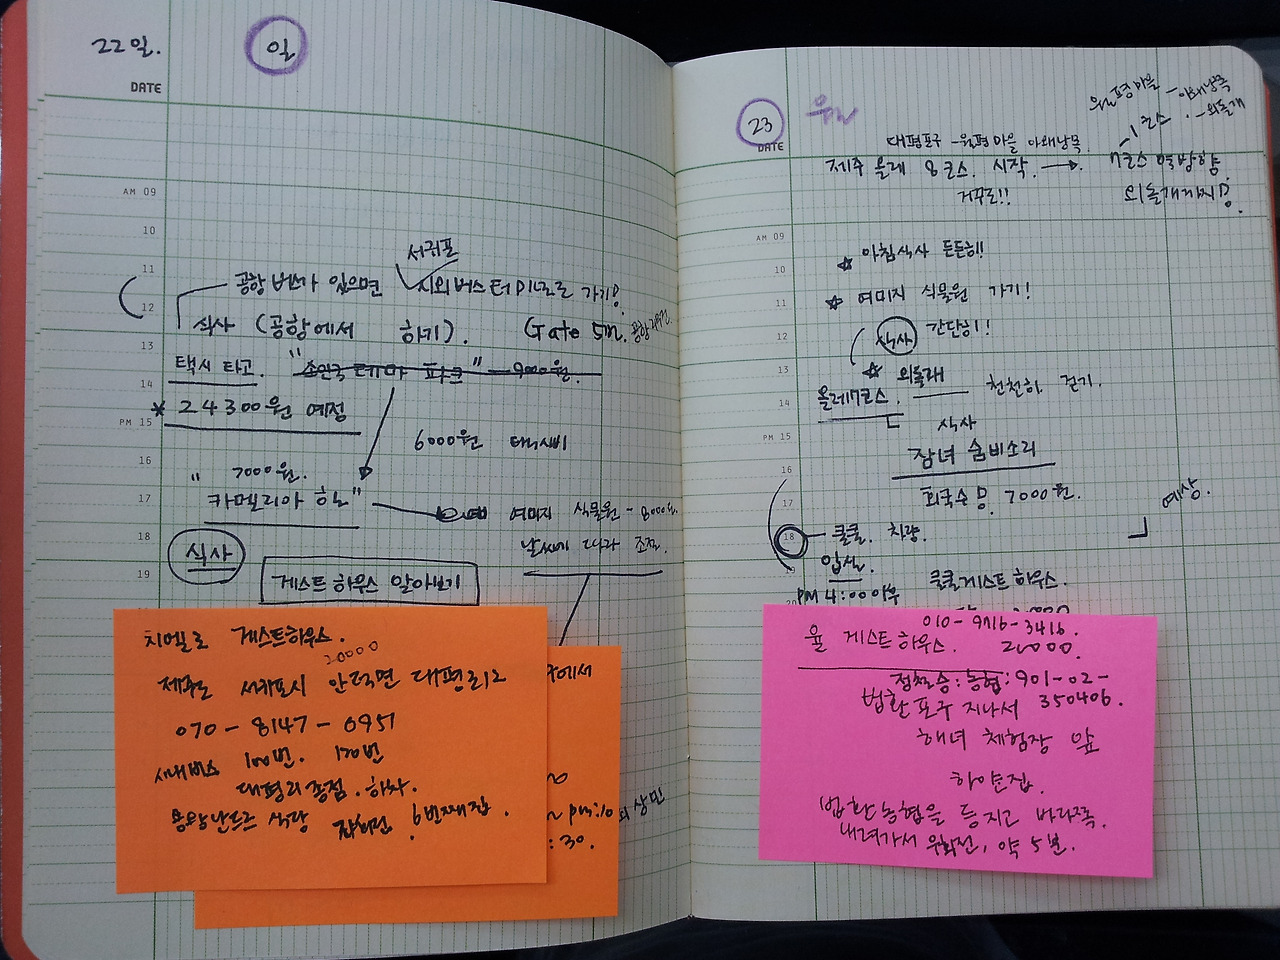 22일. 일
DATE
AM 09
10
11
12
13
14
PM 15
16
17
18
19
서귀포
공항 버스가 있으면 시외버스터미널로 가기!
식사 (공항에서 하기). Gate 5m.
택시 타고. "소인국 테마 파크" 9000원.
* 24300원 예정
6000원 택시비
7000원.
"카멜리아 힐"
여미지 식물원 - 8000원.
날씨에 따라 조절.
식사
게스트 하우스 알아보기
치멜로 게스트하우스.
20000
제주도 서귀포시 안덕면 대평리12
070-8147-0951
시내버스 100번. 120번
대평리 종점. 하차.
용왕난드르 식당 6번째 집.
에서
:30.
23 월
DATE
월평마을 - 아왜낭목
1코스 - 외돌개
대평포구 - 월평마을 아왜낭목
제주 올레 8코스. 시작. → 7코스 역방향.
거꾸로!! 외돌개까지!
AM 09
10
11
12
13
14
PM 15
16
17
18
19
☆ 아침식사 든든히!!
☆ 여미지 식물원 가기!
식사 간단히!!
☆ 외돌개
올레7코스. 천천히 걷기.
식사
잠녀 숨비소리
회국수 7000원.
예상.
쿨쿨. 차량.
입실.
PM 4:00이후 쿨쿨게스트하우스.
010-9716-3416.
율 게스트하우스. 20000.
농협: 901-02-
350406.
법환포구 지나서
해녀 체험장 앞
하얀집
법환농협을 등지고 바다쪽.
내려가서 우회전, 약 5분.